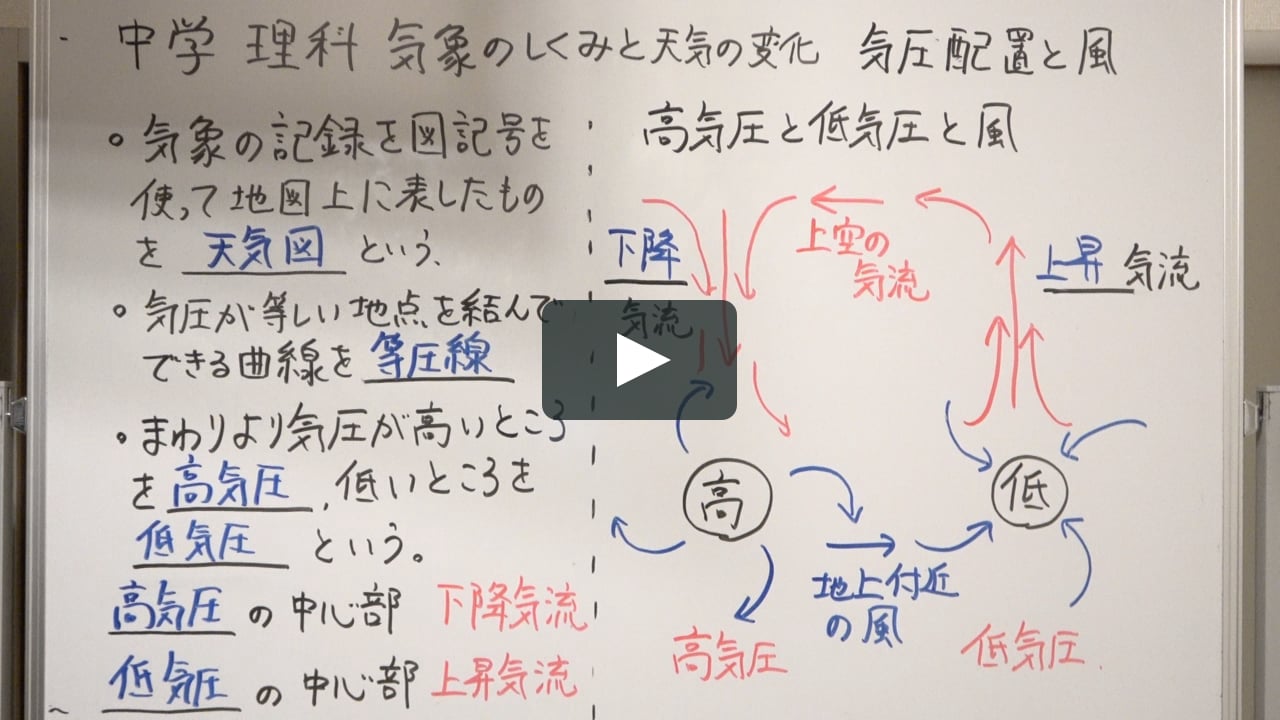 中学 理科 気象のしくみと天気の変化 気圧配置と風
。気象の記録を図記号を
使って地図上に表したもの
を 天気図 という、
。気圧が等しい地点を結んで
できる曲線を 等圧線
・まわりより気圧が高いところ
を 高気圧 , 低いところを
低気圧 という。
高気圧 の 中心部 下降気流
低気圧 の 中心部 上昇気流
高気圧と低気圧と風
下降
気流
上空の
気流
上昇 気流
高
低
地上付近
の風
高気圧
低気圧